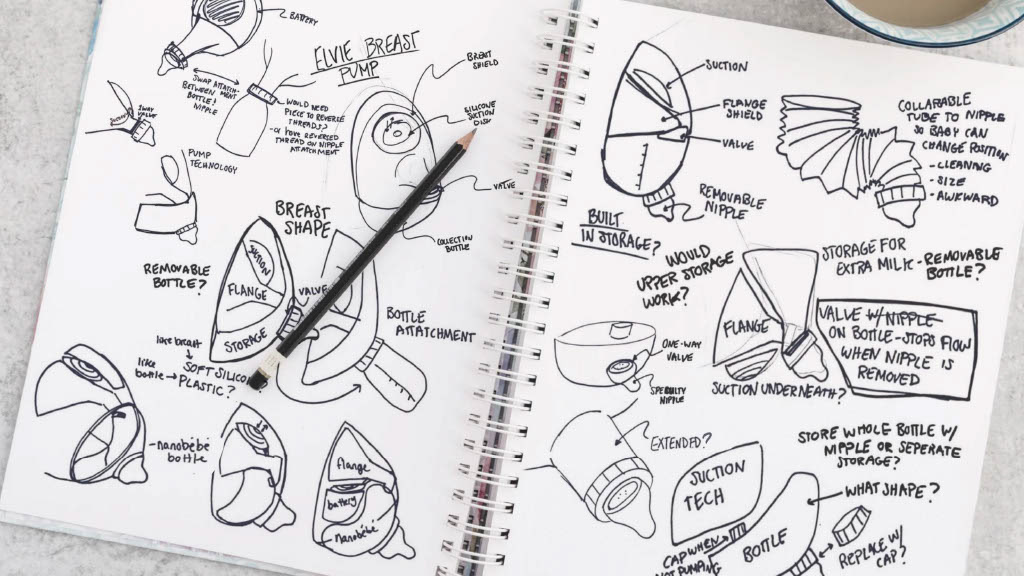 BATTERY
ELVIE BREAST
PUMP
SWAP ATTATCH-
BETWEEN MENT
BOTTLE/
NIPPLE
WOULD NEED
PIECE TO REVERSE
THREADS?
- or HAVE REVERSED
THREAD ON NIPPLE
ATTATCHMENT
BREAST
SHIELD
SILICONE
SUCTION
DISK
VALVE
COLLECTION
BOTTLE
VALVE
PUMP
TECHNOLOGY
BREAST
SHAPE
REMOVABLE
BOTTLE?
SUCTION
FLANGE
STORAGE
VALVE
BOTTLE
ATTATCHMENT
like breast
SOFT SILICO
like
bottle → PLASTIC?
- nanobébé
bottle
flange
battery
nanobébé
SUCTION
FLANGE
SHIELD
VALVE
REMOVABLE
NIPPLE
COLLAPSABLE
TUBE TO NIPPLE
SO BABY CAN
CHANGE POSITION
- CLEANING
- SIZE
- AWKWARD
BUILT
IN STORAGE?
WOULD
UPPER STORAGE
WORK?
STORAGE FOR
EXTRA MILK - REMOVABLE
BOTTLE?
FLANGE
VALVE W/NIPPLE
ON BOTTLE - STOPS FLOW
WHEN NIPPLE IS
REMOVED
SUCTION UNDERNEATH?
ONE-WAY
VALVE
SPECIALTY
NIPPLE
EXTENDED?
STORE WHOLE BOTTLE W/
NIPPLE OR SEPERATE
STORAGE?
SUCTION
TECH
BOTTLE
WHAT SHAPE?
CAP WHEN
NOT PUMPING
REPLACE W/
CAP?